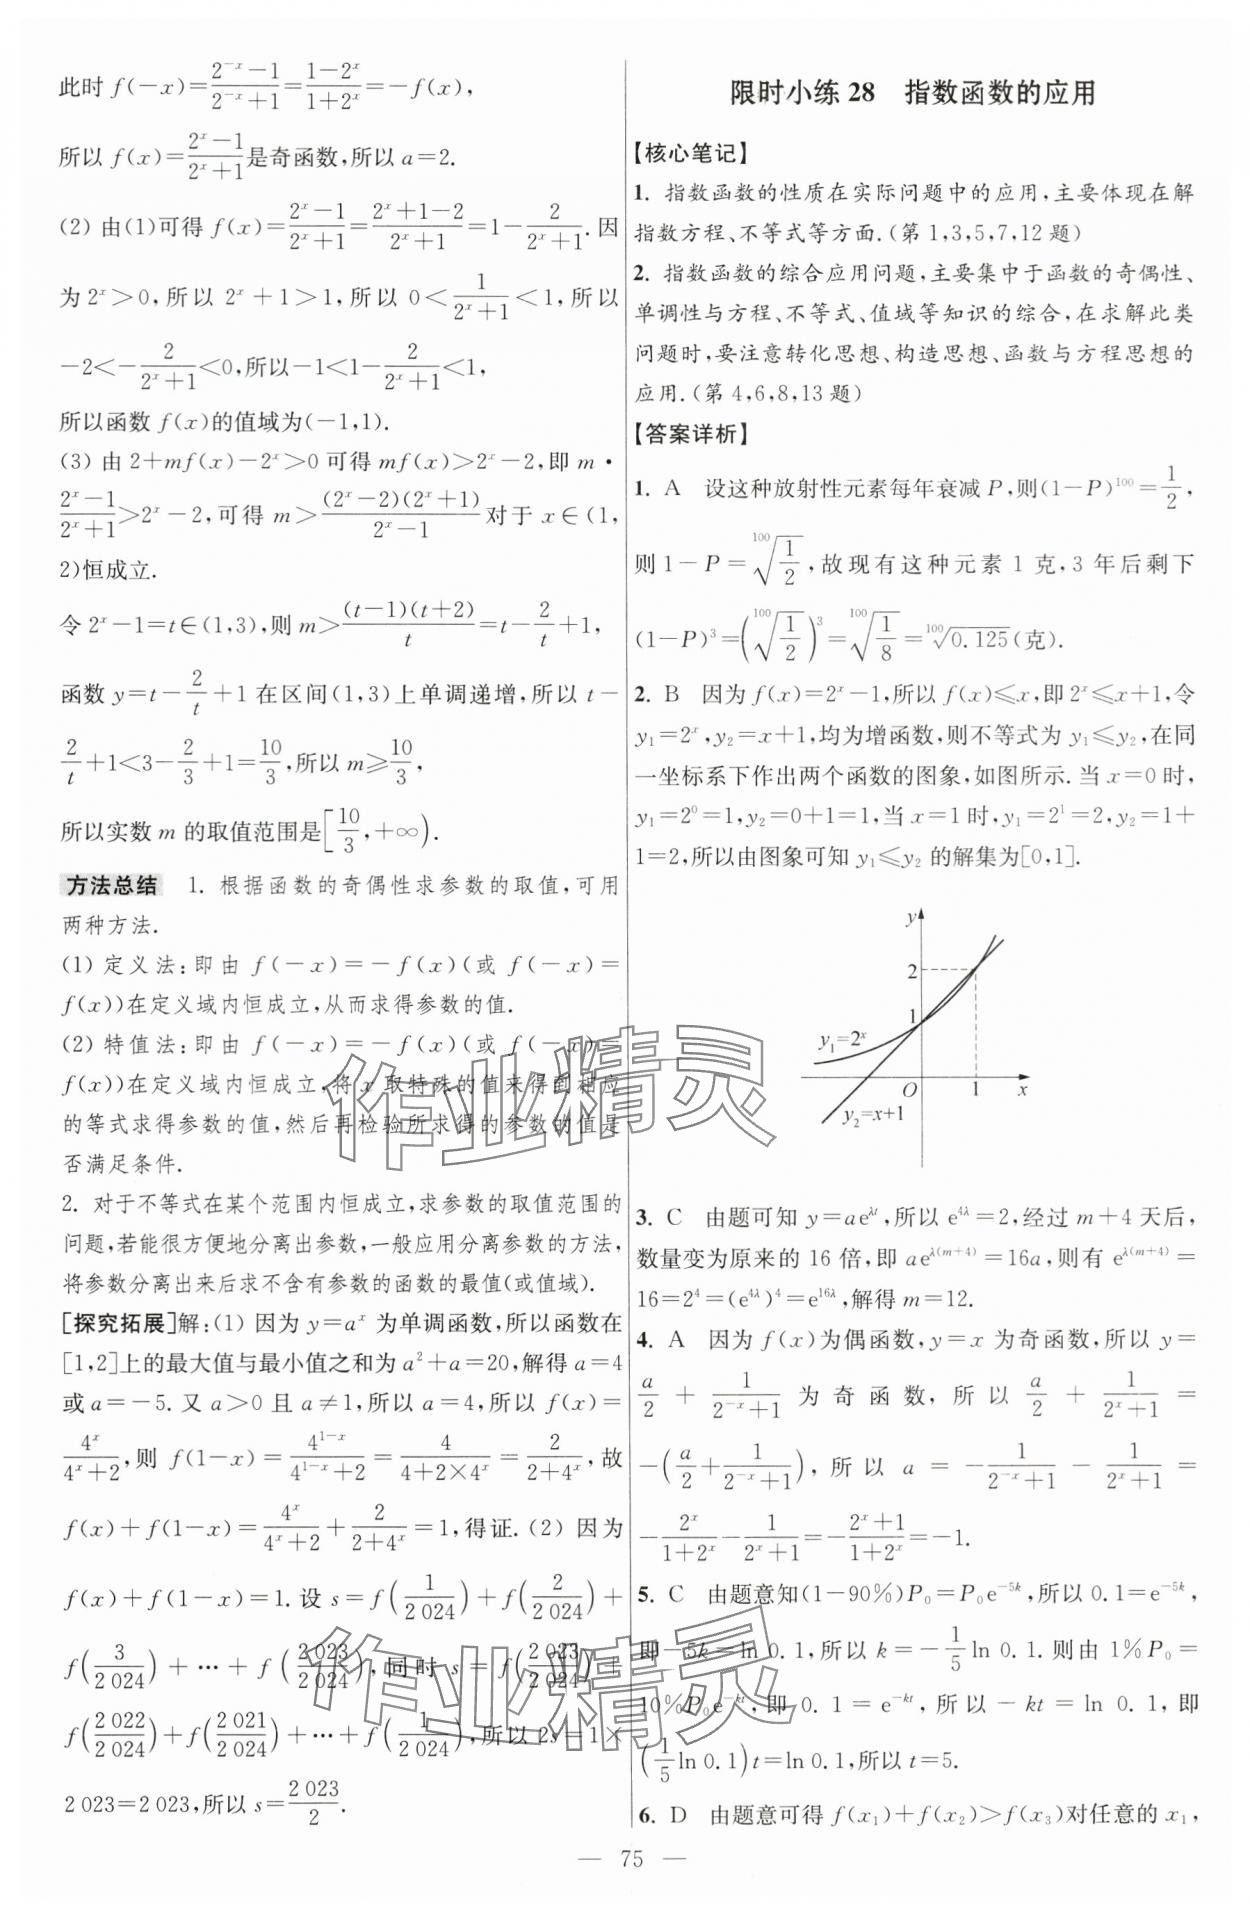 此时 f(-x)=\frac{2^{-x}-1}{2^{-x}+1}=\frac{1-2^x}{1+2^x}=-f(x),
所以 f(x)=\frac{2^x-1}{2^x+1}是奇函数,所以 a=2.
(2) 由(1)可得 f(x)=\frac{2^x-1}{2^x+1}=\frac{2^x+1-2}{2^x+1}=1-\frac{2}{2^x+1}.因
为 2^x>0,所以 2^x+1>1,所以 0<\frac{1}{2^x+1}<1,所以
-2<-\frac{2}{2^x+1}<0,所以-1<1-\frac{2}{2^x+1}<1,
所以函数 f(x)的值域为(-1,1).
(3) 由 2+mf(x)-2^x>0 可得 mf(x)>2^x-2,即 m·
\frac{2^x-1}{2^x+1}>2^x-2,可得 m>\frac{(2^x-2)(2^x+1)}{2^x-1}对于 x∈(1,
2)恒成立.
令 2^x-1=t∈(1,3),则 m>\frac{(t-1)(t+2)}{t}=t-\frac{2}{t}+1,
函数 y=t-\frac{2}{t}+1 在区间(1,3)上单调递增,所以 t-
\frac{2}{t}+1<3-\frac{2}{3}+1=\frac{10}{3},所以 m≥\frac{10}{3},
所以实数 m 的取值范围是[\frac{10}{3},+∞).
方法总结 1. 根据函数的奇偶性求参数的取值,可用
两种方法.
(1) 定义法:即由 f(-x)=-f(x)(或 f(-x)=
f(x))在定义域内恒成立,从而求得参数的值.
(2) 特值法:即由 f(-x)=-f(x)(或 f(-x)=
f(x))在定义域内恒成立,将 x 取特殊的值来得到相应
的等式求得参数的值,然后再检验所求得的参数的值是
否满足条件.
2. 对于不等式在某个范围内恒成立,求参数的取值范围的
问题,若能很方便地分离出参数,一般应用分离参数的方法,
将参数分离出来后求不含有参数的函数的最值(或值域).
[探究拓展]解:(1) 因为 y=a^x 为单调函数,所以函数在
[1,2]上的最大值与最小值之和为 a^2+a=20,解得 a=4
或 a=-5. 又 a>0 且 a≠1,所以 a=4,所以 f(x)=
\frac{4^x}{4^x+2},则 f(1-x)=\frac{4^{1-x}}{4^{1-x}+2}=\frac{4}{4+2×4^x}=\frac{2}{2+4^x},故
f(x)+f(1-x)=\frac{4^x}{4^x+2}+\frac{2}{2+4^x}=1,得证.(2) 因为
f(x)+f(1-x)=1.设 s=f(\frac{1}{2 024})+f(\frac{2}{2 024})+
f(\frac{3}{2 024})+…+f(\frac{2 023}{2 024}),同时 s=f(\frac{2 023}{2 024})+
f(\frac{2 022}{2 024})+f(\frac{2 021}{2 024})+…+f(\frac{1}{2 024}),所以 2s=1×
2 023=2 023,所以 s=\frac{2 023}{2}.
限时小练 28 指数函数的应用
【核心笔记】
1. 指数函数的性质在实际问题中的应用,主要体现在解
指数方程、不等式等方面.(第 1,3,5,7,12 题)
2. 指数函数的综合应用问题,主要集中于函数的奇偶性、
单调性与方程、不等式、值域等知识的综合,在求解此类
问题时,要注意转化思想、构造思想、函数与方程思想的
应用.(第 4,6,8,13 题)
【答案详析】
1. A 设这种放射性元素每年衰减 P,则(1-P)^{100}=\frac{1}{2},
则 1-P=\sqrt[100]{\frac{1}{2}},故现有这种元素 1 克,3 年后剩下
(1-P)^3=(\sqrt[100]{\frac{1}{2}})^3=\sqrt[100]{\frac{1}{8}}=\sqrt[100]{0.125}(克).
2. B 因为 f(x)=2^x-1,所以 f(x)≤x,即 2^x≤x+1,令
y_1=2^x,y_2=x+1,均为增函数,则不等式为 y_1≤y_2,在同
一坐标系下作出两个函数的图象,如图所示. 当 x=0 时,
y_1=2^0=1,y_2=0+1=1,当 x=1 时,y_1=2^1=2,y_2=1+
1=2,所以由图象可知 y_1≤y_2 的解集为[0,1].
y
2
1
y_1=2^x
O 1 x
y_2=x+1
3. C 由题可知 y=ae^{λt},所以 e^{4λ}=2,经过 m+4 天后,
数量变为原来的 16 倍,即 ae^{λ(m+4)}=16a,则有 e^{λ(m+4)}=
16=2^4=(e^{4λ})^4=e^{16λ},解得 m=12.
4. A 因为 f(x)为偶函数,y=x 为奇函数,所以 y=
\frac{a}{2}+\frac{1}{2^{-x}+1}为奇函数,所以\frac{a}{2}+\frac{1}{2^x+1}=
-(\frac{a}{2}+\frac{1}{2^{-x}+1}),所以 a=-\frac{1}{2^{-x}+1}-\frac{1}{2^x+1}=
-\frac{2^x}{1+2^x}-\frac{1}{2^x+1}=-\frac{2^x+1}{1+2^x}=-1.
5. C 由题意知(1-90%)P_0=P_0e^{-5k},所以 0.1=e^{-5k},
即-5k=ln 0.1,所以 k=-\frac{1}{5}ln 0.1. 则由 1%P_0=
10%P_0e^{-kt},即 0.1=e^{-kt},所以-kt=ln 0.1,即
(\frac{1}{5}ln 0.1)t=ln 0.1,所以 t=5.
6. D 由题意可得 f(x_1)+f(x_2)>f(x_3)对任意的 x_1,
— 75 —
作业精灵
作业精灵